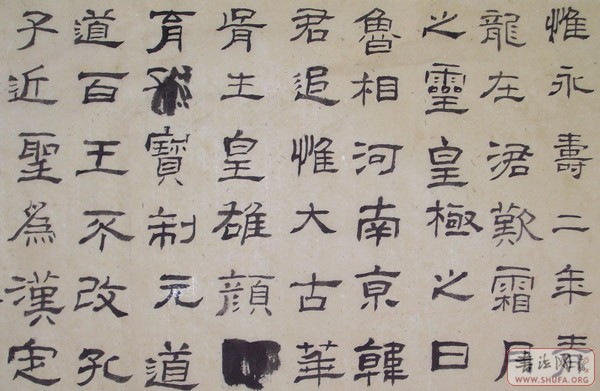 惟永壽二年青
龍在涒歎霜月
之靈皇極之日
魯相河南京韓
君追惟大古華
胥生皇雄顏
育寶制元道
道百王不改孔
子近聖爲漢定
WWW.SHUFA.ORG